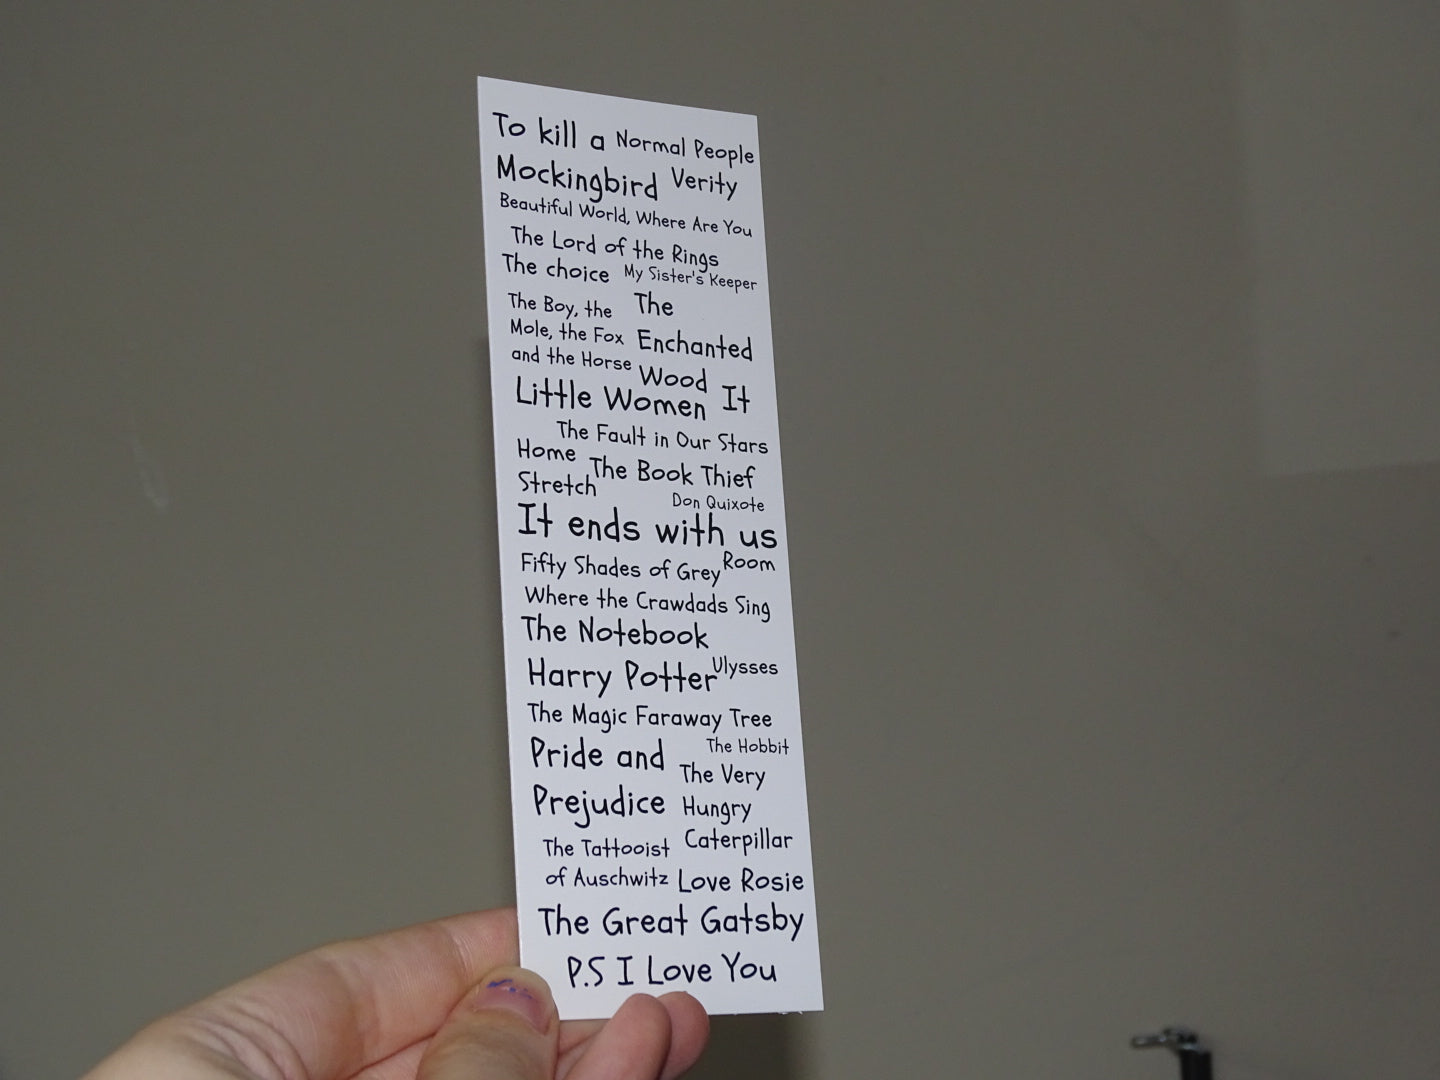 To kill a
Mockingbird
Normal People
Verity
Beautiful World, Where Are You
The Lord of the Rings
The choice
My Sister's Keeper
The Boy, the
Mole, the Fox
and the Horse
The
Enchanted
Wood
Little Women
It
The Fault in Our Stars
Home
Stretch
The Book Thief
Don Quixote
It ends with us
Fifty Shades of Grey
Room
Where the Crawdads Sing
The Notebook
Harry Potter
Ulysses
The Magic Faraway Tree
Pride and
Prejudice
The Hobbit
The Very
Hungry
Caterpillar
The Tattooist
of Auschwitz
Love Rosie
The Great Gatsby
P.S I Love You